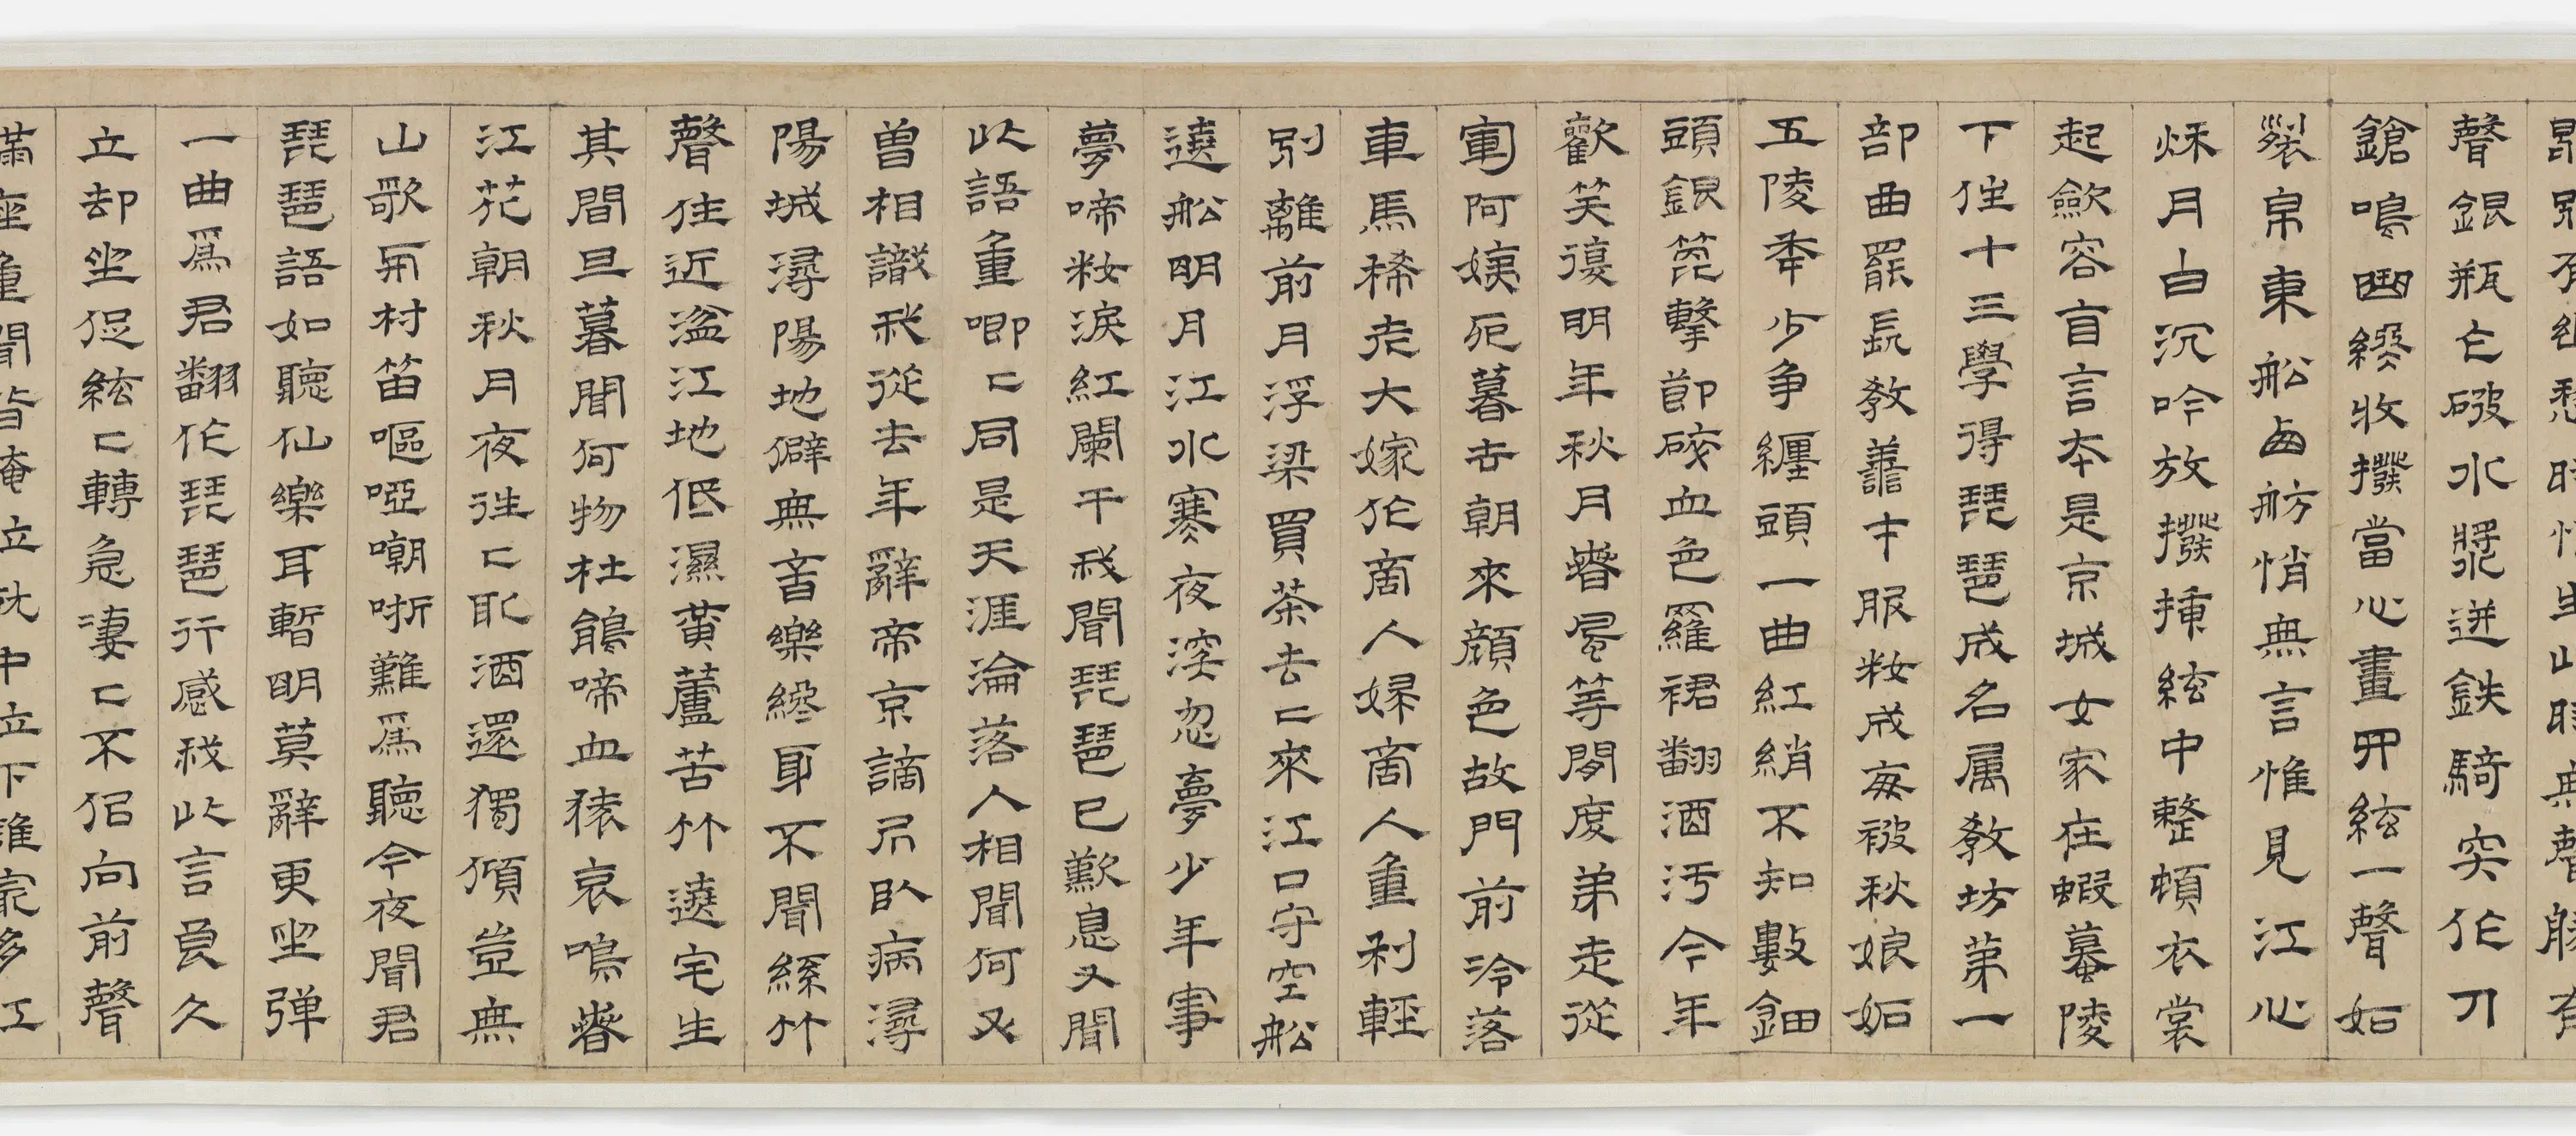 聲銀瓶乍破水漿迸鉄騎突作刀
鎗鳴曲終收撥當心畫四絃一聲如
裂帛東船西舫悄無言惟見江心
秋月白沉吟放撥挿絃中整頓衣裳
起歛容自言本是京城女家在蝦蟇陵
下住十三學得琵琶成名属教坊第一
部曲罷長教善才服粧成每被秋娘妬
五陵年少争纏頭一曲紅綃不知數鈿
頭銀篦擊節碎血色羅裙翻酒汚今年
歡笑復明年秋月春風等閒度弟走從
軍阿姨死暮去朝來顔色故門前冷落
車馬稀老大嫁作商人婦商人重利輕
別離前月浮梁買茶去〻來江口守空船
遶船明月江水寒夜深忽夢少年事
夢啼粧淚紅闌干我聞琵琶已歎息又聞
此語重唧〻同是天涯淪落人相聞何又
曾相識我從去年辭帝京謫居臥病潯
陽城潯陽地僻無音樂終歲不聞絲竹
聲住近湓江地低濕黄蘆苦竹遶宅生
其間旦暮聞何物杜鵑啼血猿哀鳴春
江花朝秋月夜往〻取酒還獨傾豈無
山歌與村笛嘔啞嘲哳難爲聽今夜聞君
琵琶語如聽仙樂耳暫明莫辭更坐弹
一曲爲君翻作琵琶行感我此言良久
立却坐促絃〻轉急凄〻不似向前聲